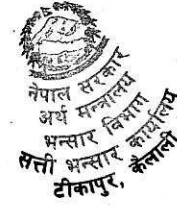 नेपाल सरकार
अर्थ मन्त्रालय
भन्सार विभाग
सत्ती भन्सार कार्यालय
टीकापुर, कैलाली